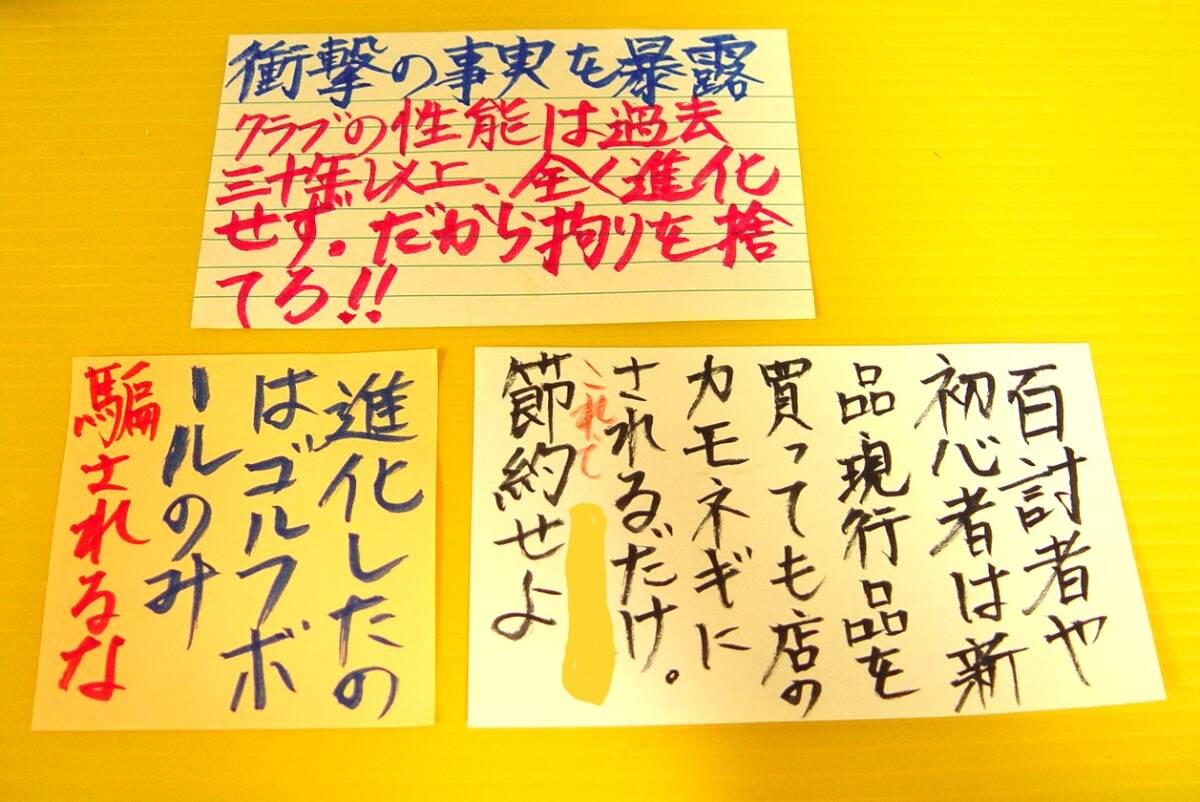 衝撃の事実を暴露
クラブの性能は過去
三十年以上、全く進化
せず。だから拘りを捨
てろ!!
進化したの
はゴルフボ
ールのみ
騙されるな
百討者や
初心者は新
品現行品を
買っても店の
カモネギに
されるだけ。
これで
節約せよ